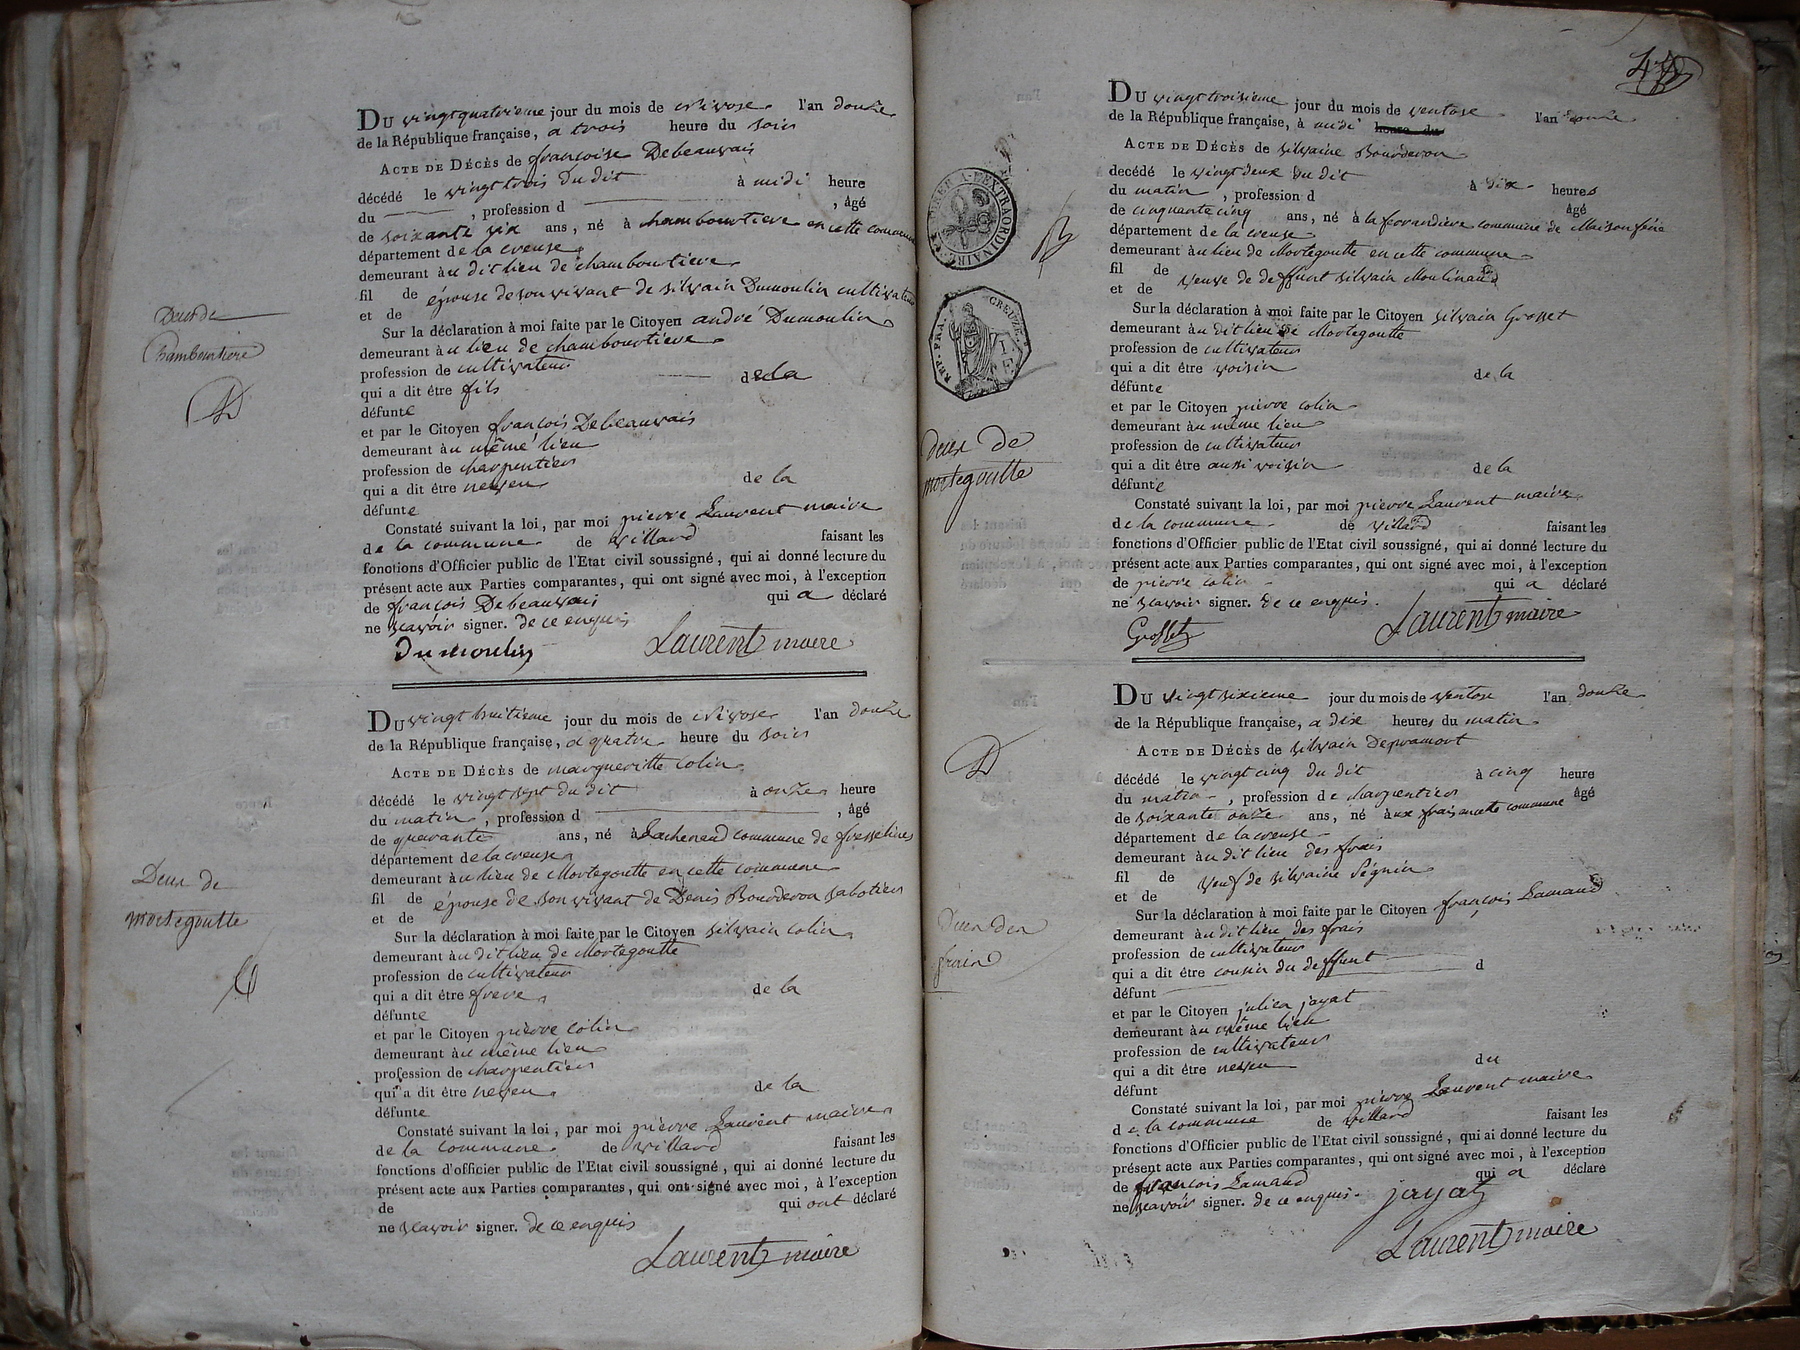 DU vingtquatrieme jour du mois de Nivose l'an douze
de la République française, a trois heure du soir
ACTE DE DÉCÈS de francoise Debeauvais
décédé le vingt trois Du dit à midi heure
du , profession d , âgé
de soixante six ans, né à chambourtiere en cette commune
département de la creuse
demeurant àu dit lieu de chambourtiere
fil de épouse de son vivant de silvain Dumoulin cultivateur
et de
Sur la déclaration à moi faite par le Citoyen andré Dumoulin
demeurant àu lieu de chambourtiere
profession de cultivateur
qui a dit être fils de la
défunte
et par le Citoyen françois Debeauvais
demeurant àu même lieu
profession de charpentier
qui a dit être neveu de la
défunte
Constaté suivant la loi, par moi pierre Laurent maire
de la commune de villard faisant les
fonctions d'Officier public de l'Etat civil soussigné, qui ai donné lecture du
présent acte aux Parties comparantes, qui ont signé avec moi, à l'exception
de françois Debeauvais qui a déclaré
ne scavoir signer. de ce enquis
Dumoulin Laurent maire
Deces de
Chambourtiere
DU vingt huitieme jour du mois de Nivose l'an douze
de la République française, a quatre heure du soir
ACTE DE DÉCÈS de margueritte colin
décédé le vingt sept du dit à onze heure
du matin, profession d , âgé
de quarante ans, né à Lachenaud commune de fresselines
département de la creuse
demeurant àu lieu de Mortegoutte en cette commune
fil de épouse de son vivant de Denis Bourderon sabotier
et de
Sur la déclaration à moi faite par le Citoyen silvain colin
demeurant àu dit lieu de Mortegoutte
profession de cultivateur
qui a dit être frere de la
défunte
et par le Citoyen pierre colin
demeurant àu même lieu
profession de charpentier
qui a dit être neveu de la
défunte
Constaté suivant la loi, par moi pierre Laurent maire
de la commune de villard faisant les
fonctions d'officier public de l'Etat civil soussigné, qui ai donné lecture du
présent acte aux Parties comparantes, qui ont signé avec moi, à l'exception
de qui ont déclaré
ne scavoir signer. de ce enquis
Laurent maire
Deces de
mortegoutte
DU vingt troisieme jour du mois de ventose l'an douze
de la République française, à midi heure du
ACTE DE DÉCÈS de silvaine Bourderon
décédé le vingt deux du dit à dix heures
du matin, profession d âgé
de cinquante cinq ans, né à la ferrandiere commune de Maison feine
département de la creuse
demeurant àu lieu de Mortegoutte en cette commune
fil de veuve de deffunt silvain Moulinaud
et de
Sur la déclaration à moi faite par le Citoyen silvain Grosset
demeurant àu dit lieu de Mortegoutte
profession de cultivateur
qui a dit être voisin de la
défunte
et par le Citoyen pierre colin
demeurant àu même lieu
profession de cultivateur
qui a dit être aussi voisin de la
défunte
Constaté suivant la loi, par moi pierre Laurent maire
de la commune de villard faisant les
fonctions d'Officier public de l'Etat civil soussigné, qui ai donné lecture du
présent acte aux Parties comparantes, qui ont signé avec moi, à l'exception
de pierre colin qui a déclaré
ne scavoir signer. de ce enquis.
Grosset Laurent maire
A L'EXTRAORDINAIRE
REP. FRA. CREUZE
deces de
mortegoutte
DU vingt sixieme jour du mois de ventose l'an douze
de la République française, a dix heures du matin
ACTE DE DÉCÈS de silvain Depramort
décédé le vingt cinq du dit à cinq heure
du matin, profession de charpentier âgé
de soixante onze ans, né àux frais cette commune
département de la creuse
demeurant àu dit lieu des frais
fil de veuf de silvaine Pégnin
et de
Sur la déclaration à moi faite par le Citoyen françois Lamaud
demeurant àu dit lieu des frais
profession de cultivateur
qui a dit être cousin du deffunt d
défunt
et par le Citoyen julien jayat
demeurant àu même lieu
profession de cultivateur
qui a dit être neveu du
défunt
Constaté suivant la loi, par moi pierre Laurent maire
de la commune de villard faisant les
fonctions d'Officier public de l'Etat civil soussigné, qui ai donné lecture du
présent acte aux Parties comparantes, qui ont signé avec moi, à l'exception
de françois Lamaud qui a déclaré
ne scavoir signer. de ce enquis. jayat
Laurent maire